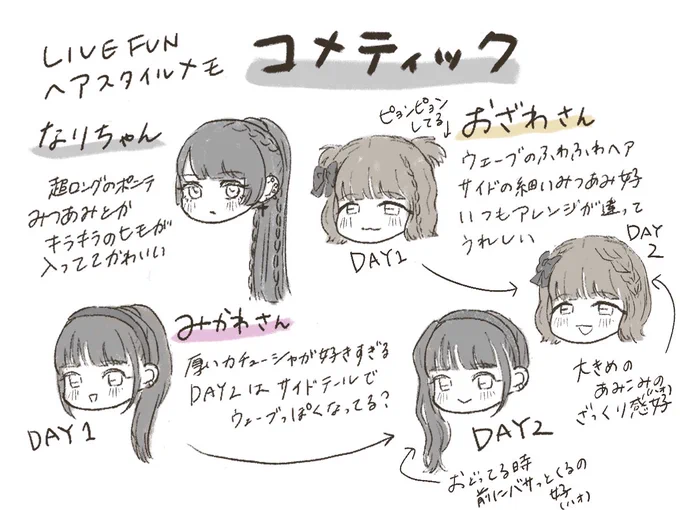 LIVE FUN
ヘアスタイルメモ
コメティック
なりちゃん
超ロングのポニテ
みつあみとか
キラキラのヒモが
入っててかわいい
ピョンピョン
してる↓
おざわさん
ウェーブのふわふわヘア
サイドの細いみつあみ好
いつもアレンジが違って
うれしい
DAY1
DAY
2
大きめの
あみこみの
ざっくり感好
(ハオ)
みかわさん
厚いカチューシャが好きすぎる
DAY2はサイドテールで
ウェーブっぽくなってる?
DAY1
DAY2
おどってる時
前にバサっとくるの
好
(ハオ)